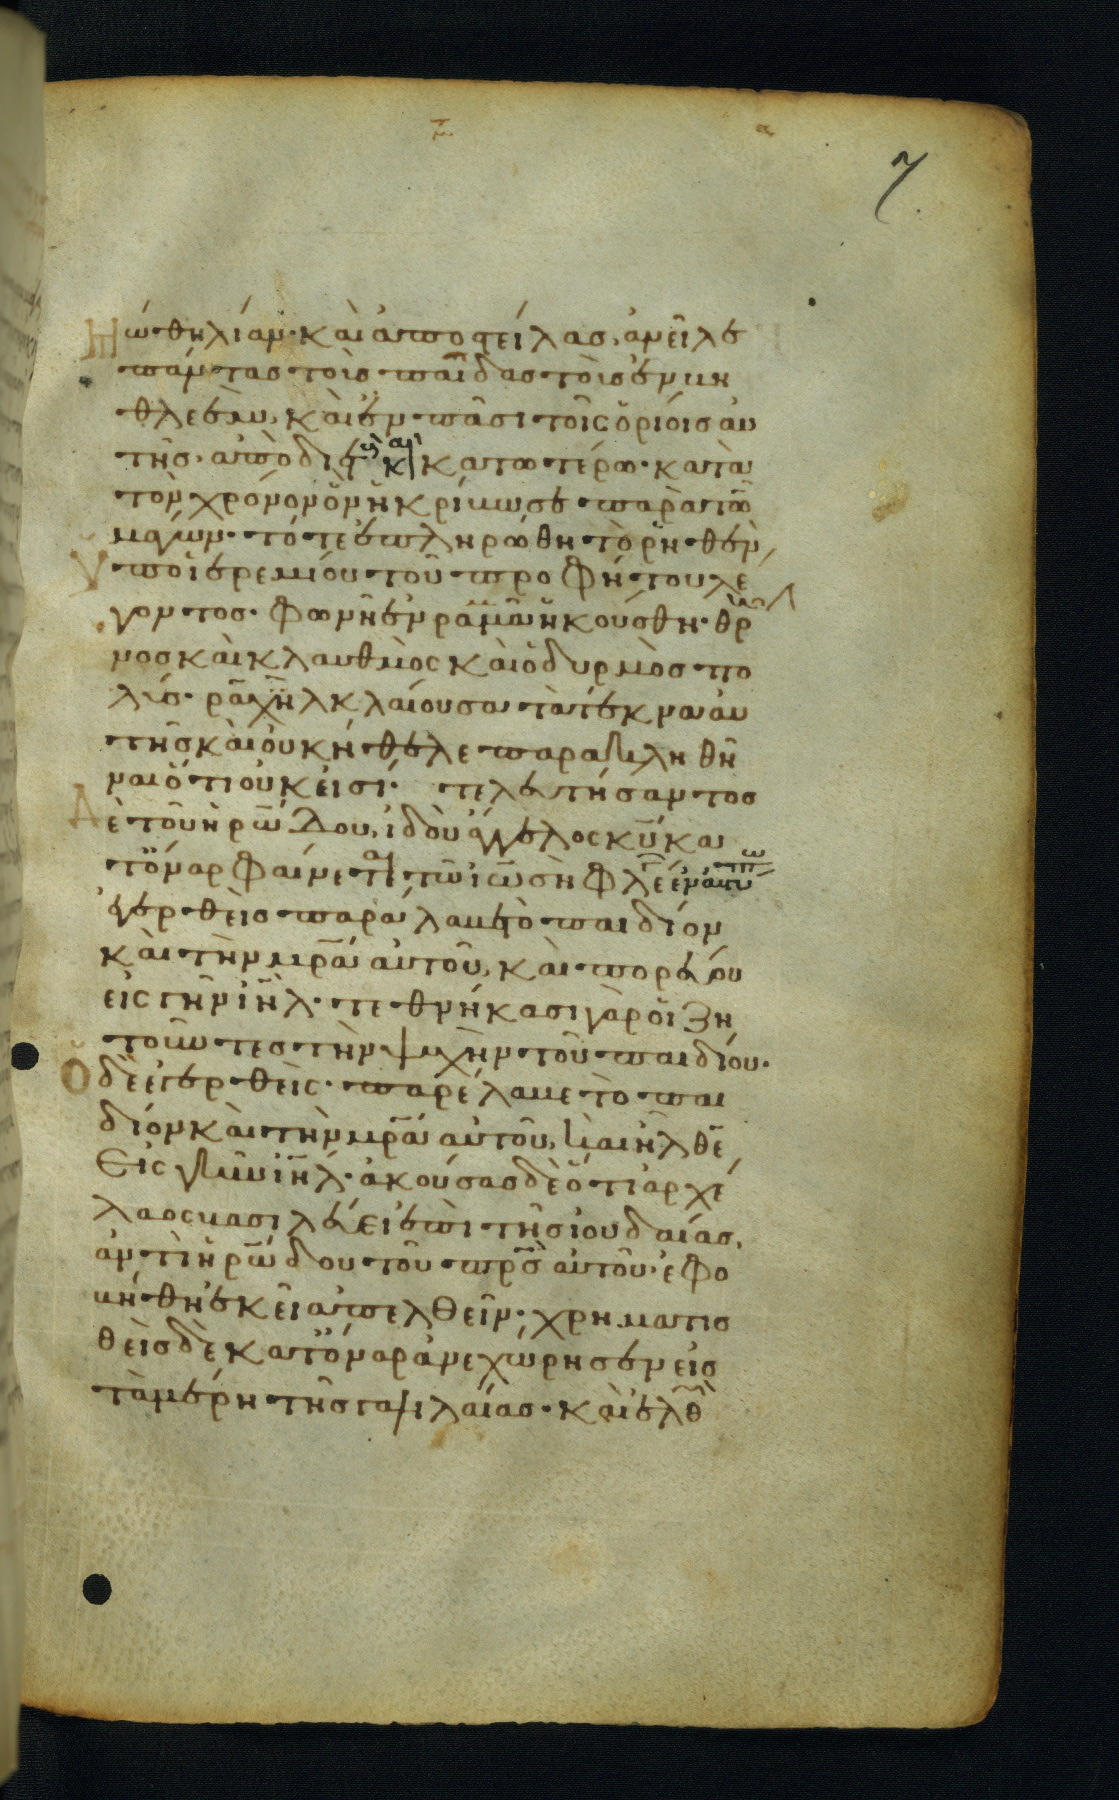 7
ώθη λίαν· καὶ ἀποστείλας, ἀνεῖλε
πάντας τοὺς παῖδας τοὺς ἐν βη
θλεὲμ, καὶ ἐν πᾶσι τοῖς ὁρίοις αὐ
τῆς, ἀπὸ διετοῦς καὶ κατωτέρω· κατὰ
τὸν χρόνον ὃν ἠκρίβωσε παρὰ τῶν
μάγων· τότε ἐπληρώθη τὸ ῥηθὲν
ὑπὸ ἱερεμίου τοῦ προφήτου λέ
γοντος· φωνὴ ἐν ῥαμᾶ ἠκούσθη· θρῆ
νος καὶ κλαυθμὸς καὶ ὀδυρμὸς πο
λύς· ῥαχὴλ κλαίουσα τὰ τέκνα αὐ
τῆς καὶ οὐκ ἤθελε παρακληθῆ
ναι ὅτι οὐκ εἰσί· τελευτήσαντος
δὲ τοῦ ἡρώδου, ἰδοὺ ἄγγελος κ̅υ̅ κα
τ' ὄναρ φαίνεται τῷ ἰωσὴφ λέ ἐν αἰγύπτω
ἐγερθεὶς παράλαβε τὸ παιδίον
καὶ τὴν μ̅ρ̅α̅ αὐτοῦ, καὶ πορεύου
εἰς γῆν ι̅η̅λ̅· τεθνήκασι γὰρ οἱ ζη
τοῦντες τὴν ψυχὴν τοῦ παιδίου·
ὁ δὲ ἐγερθεὶς· παρέλαβε τὸ παι
δίον καὶ τὴν μ̅ρ̅α̅ αὐτοῦ, καὶ ἦλθεν
εἰς γῆν ι̅η̅λ̅· ἀκούσας δὲ ὅτι ἀρχέ
λαος βασιλεύει ἐπὶ τῆς ἰουδαίας,
ἀντὶ ἡρώδου τοῦ π̅ρ̅ς̅ αὐτοῦ· ἐφο
βήθη ἐκεῖ ἀπελθεῖν· χρηματισ
θεὶς δὲ κατ' ὄναρ ἀνεχώρησεν εἰς
τὰ μέρη τῆς γαλιλαίας· καὶ ἐλθὼ